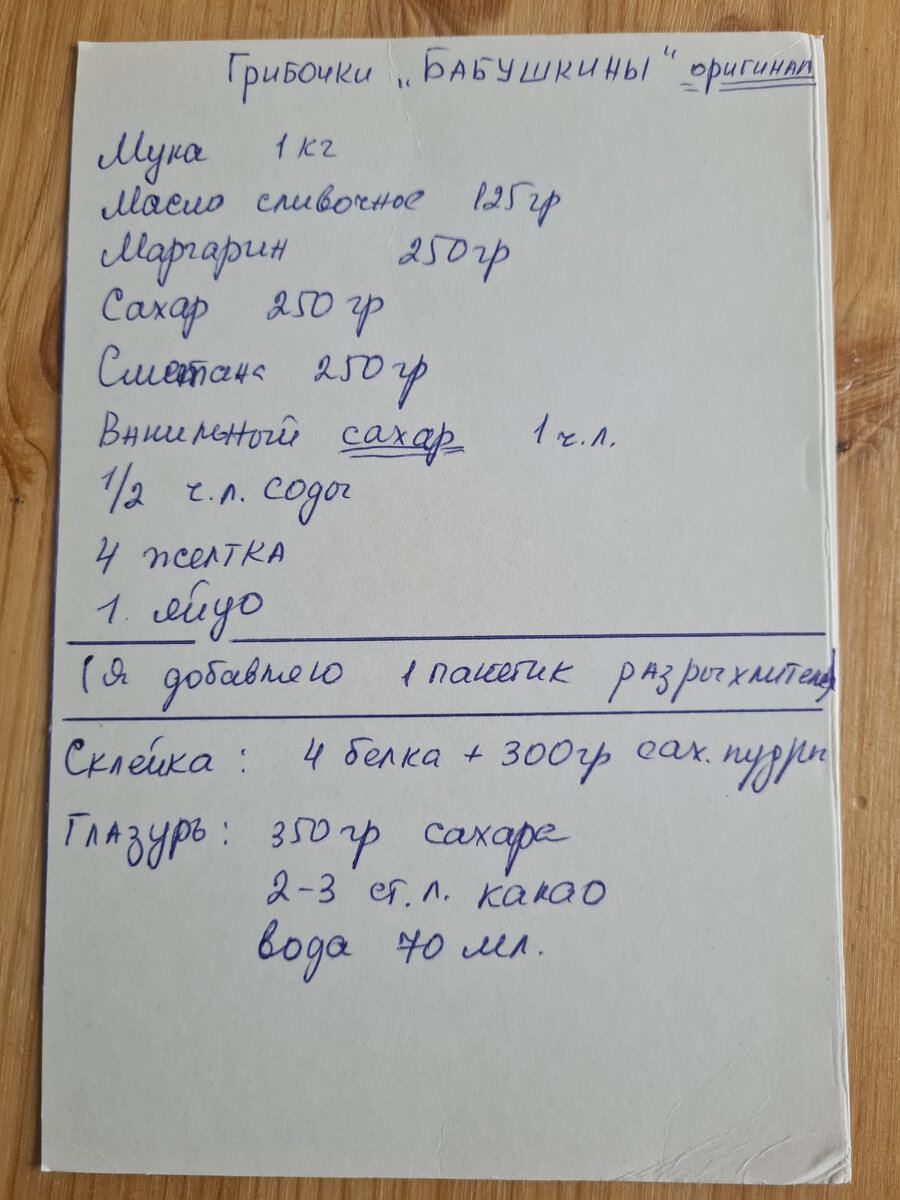 Грибочки „БАБУШКИНЫ“ оригинал
Мука 1 кг
Масло сливочное 125 гр
Маргарин 250 гр
Сахар 250 гр
Сметана 250 гр
Ванильный сахар 1 ч.л.
1/2 ч.л. соды
4 желтка
1 яйцо
(Я добавляю 1 пакетик разрыхлителя)
Склейка: 4 белка + 300 гр сах. пудры
Глазурь: 350 гр сахара
2-3 ст. л. какао
вода 70 мл.